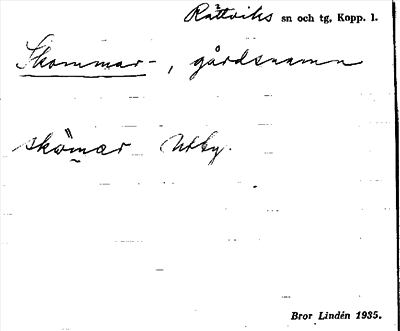 Rättviks sn och tg, Kopp. l.
Skommar-, gårdsnamn
skòmar Utby.
Bror Lindén 1935.